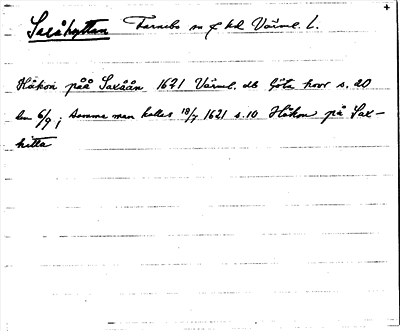 Saxåhyttan Färnebo sn o hd Värml. l.
Håkon påå Saxåån 1621 Värml. db Göta hovr s. 20
den 6/9; samma man kallas 18/7 1621 s. 10 Håkon på Sax-
hitta